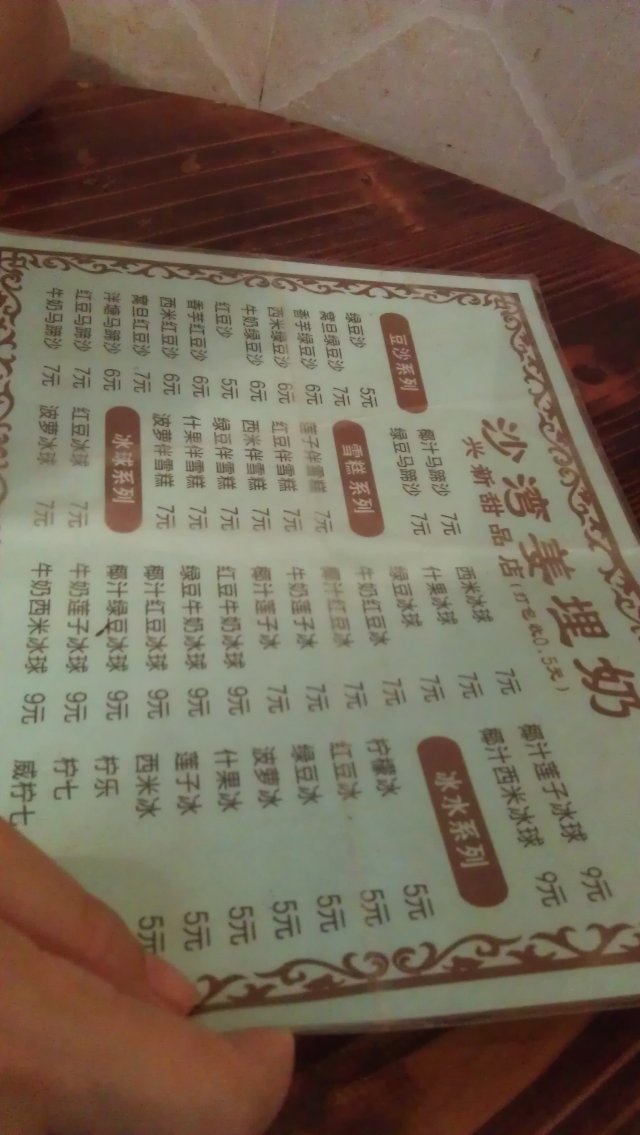 沙湾姜埋奶
兴新甜品店(打包收0.5元)
豆沙系列
绿豆沙 5元
窝旦绿豆沙 7元
香芋绿豆沙 6元
西米绿豆沙 6元
牛奶绿豆沙 6元
红豆沙 5元
香芋红豆沙 6元
西米红豆沙 6元
窝旦红豆沙 7元
洋塘马蹄沙 6元
红豆马蹄沙 7元
牛奶马蹄沙 7元
椰汁马蹄沙 7元
绿豆马蹄沙 7元
雪糕系列
莲子伴雪糕 7元
红豆伴雪糕 7元
西米伴雪糕 7元
绿豆伴雪糕 7元
什果伴雪糕 7元
波萝伴雪糕 7元
冰球系列
红豆冰球 7元
波萝冰球 7元
西米冰球 7元
什果冰球 7元
绿豆冰球 7元
牛奶红豆冰 7元
椰汁红豆冰 7元
牛奶莲子冰 7元
椰汁莲子冰 7元
红豆牛奶冰球 9元
绿豆牛奶冰球 9元
椰汁红豆冰球 9元
椰汁绿豆冰球 9元
牛奶莲子冰球 9元
牛奶西米冰球 9元
椰汁莲子冰球 9元
椰汁西米冰球 9元
冰水系列
柠檬冰 5元
红豆冰 5元
绿豆冰 5元
波萝冰 5元
什果冰 5元
莲子冰 5元
西米冰 5元
柠乐
柠七
咸柠七